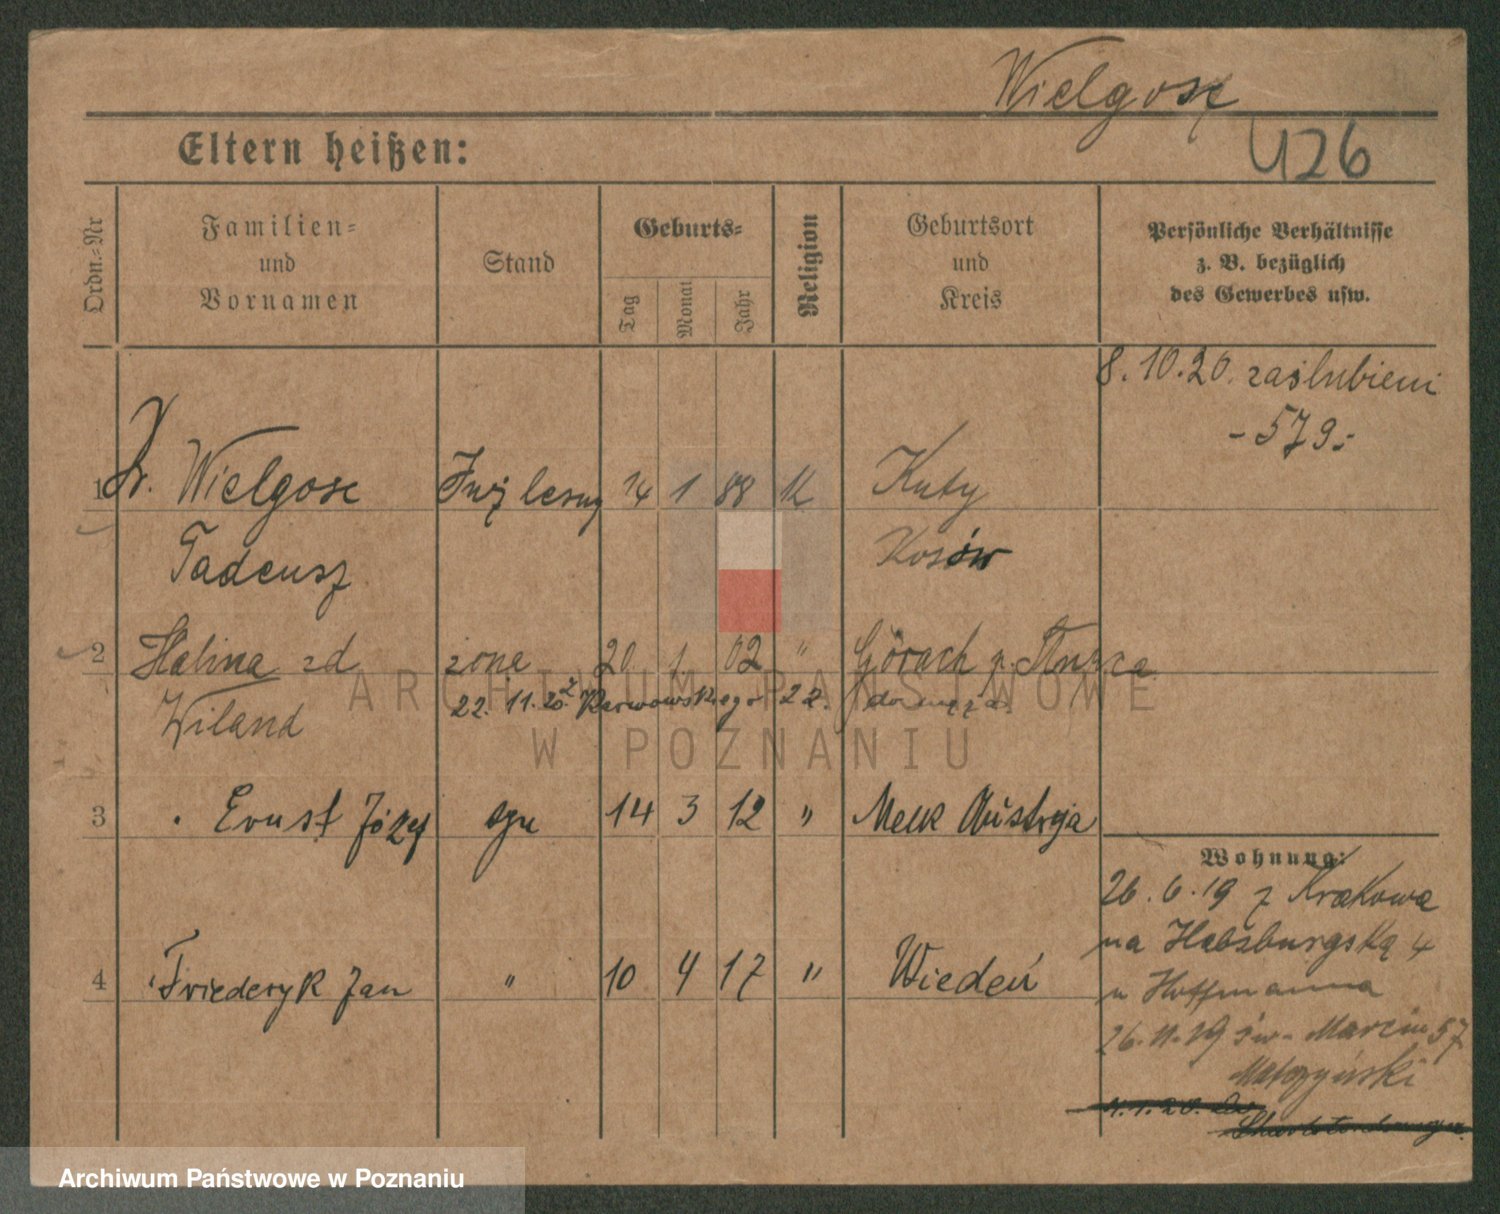 Wielgosz
426
Eltern heißen:
Ordn.-Nr
Familien- und Vornamen
Stand
Geburts-
Tag
Monat
Jahr
Religion
Geburtsort und Kreis
Persönliche Verhältnisse
z. B. bezüglich
des Gewerbes usw.
8. 10. 20. zaślubieni
- 579 -
1 Dr. Wielgosz Inż lesny 14 1 88 K Kuty
Tadeusz Kosów
2 Halina zd żona 20 1 02 " Górach p.
22. 11. 20 Karwowskiego 22. do męża.
Wiland
3 Ernst Józef syn 14 3 12 " Melk Austrja
4 Friederyk Jan " 10 4 17 " Wiedeń
Wohnung:
26. 6. 19 z Krakowa
na Habsburgską 4
u Hoffmanna
26. 11. 19 św. Marcin 57
ARCHIWUM PAŃSTWOWE
W POZNANIU
Archiwum Państwowe w Poznaniu